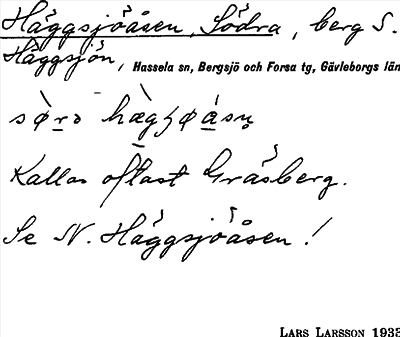 Häggsjöåsen, Södra, berg S.
Häggsjön, Hassela sn, Bergsjö och Forsa tg, Gävleborgs län
Kallas oftast Gråsberg.
Se N. Häggsjöåsen!
LARS LARSSON 1933